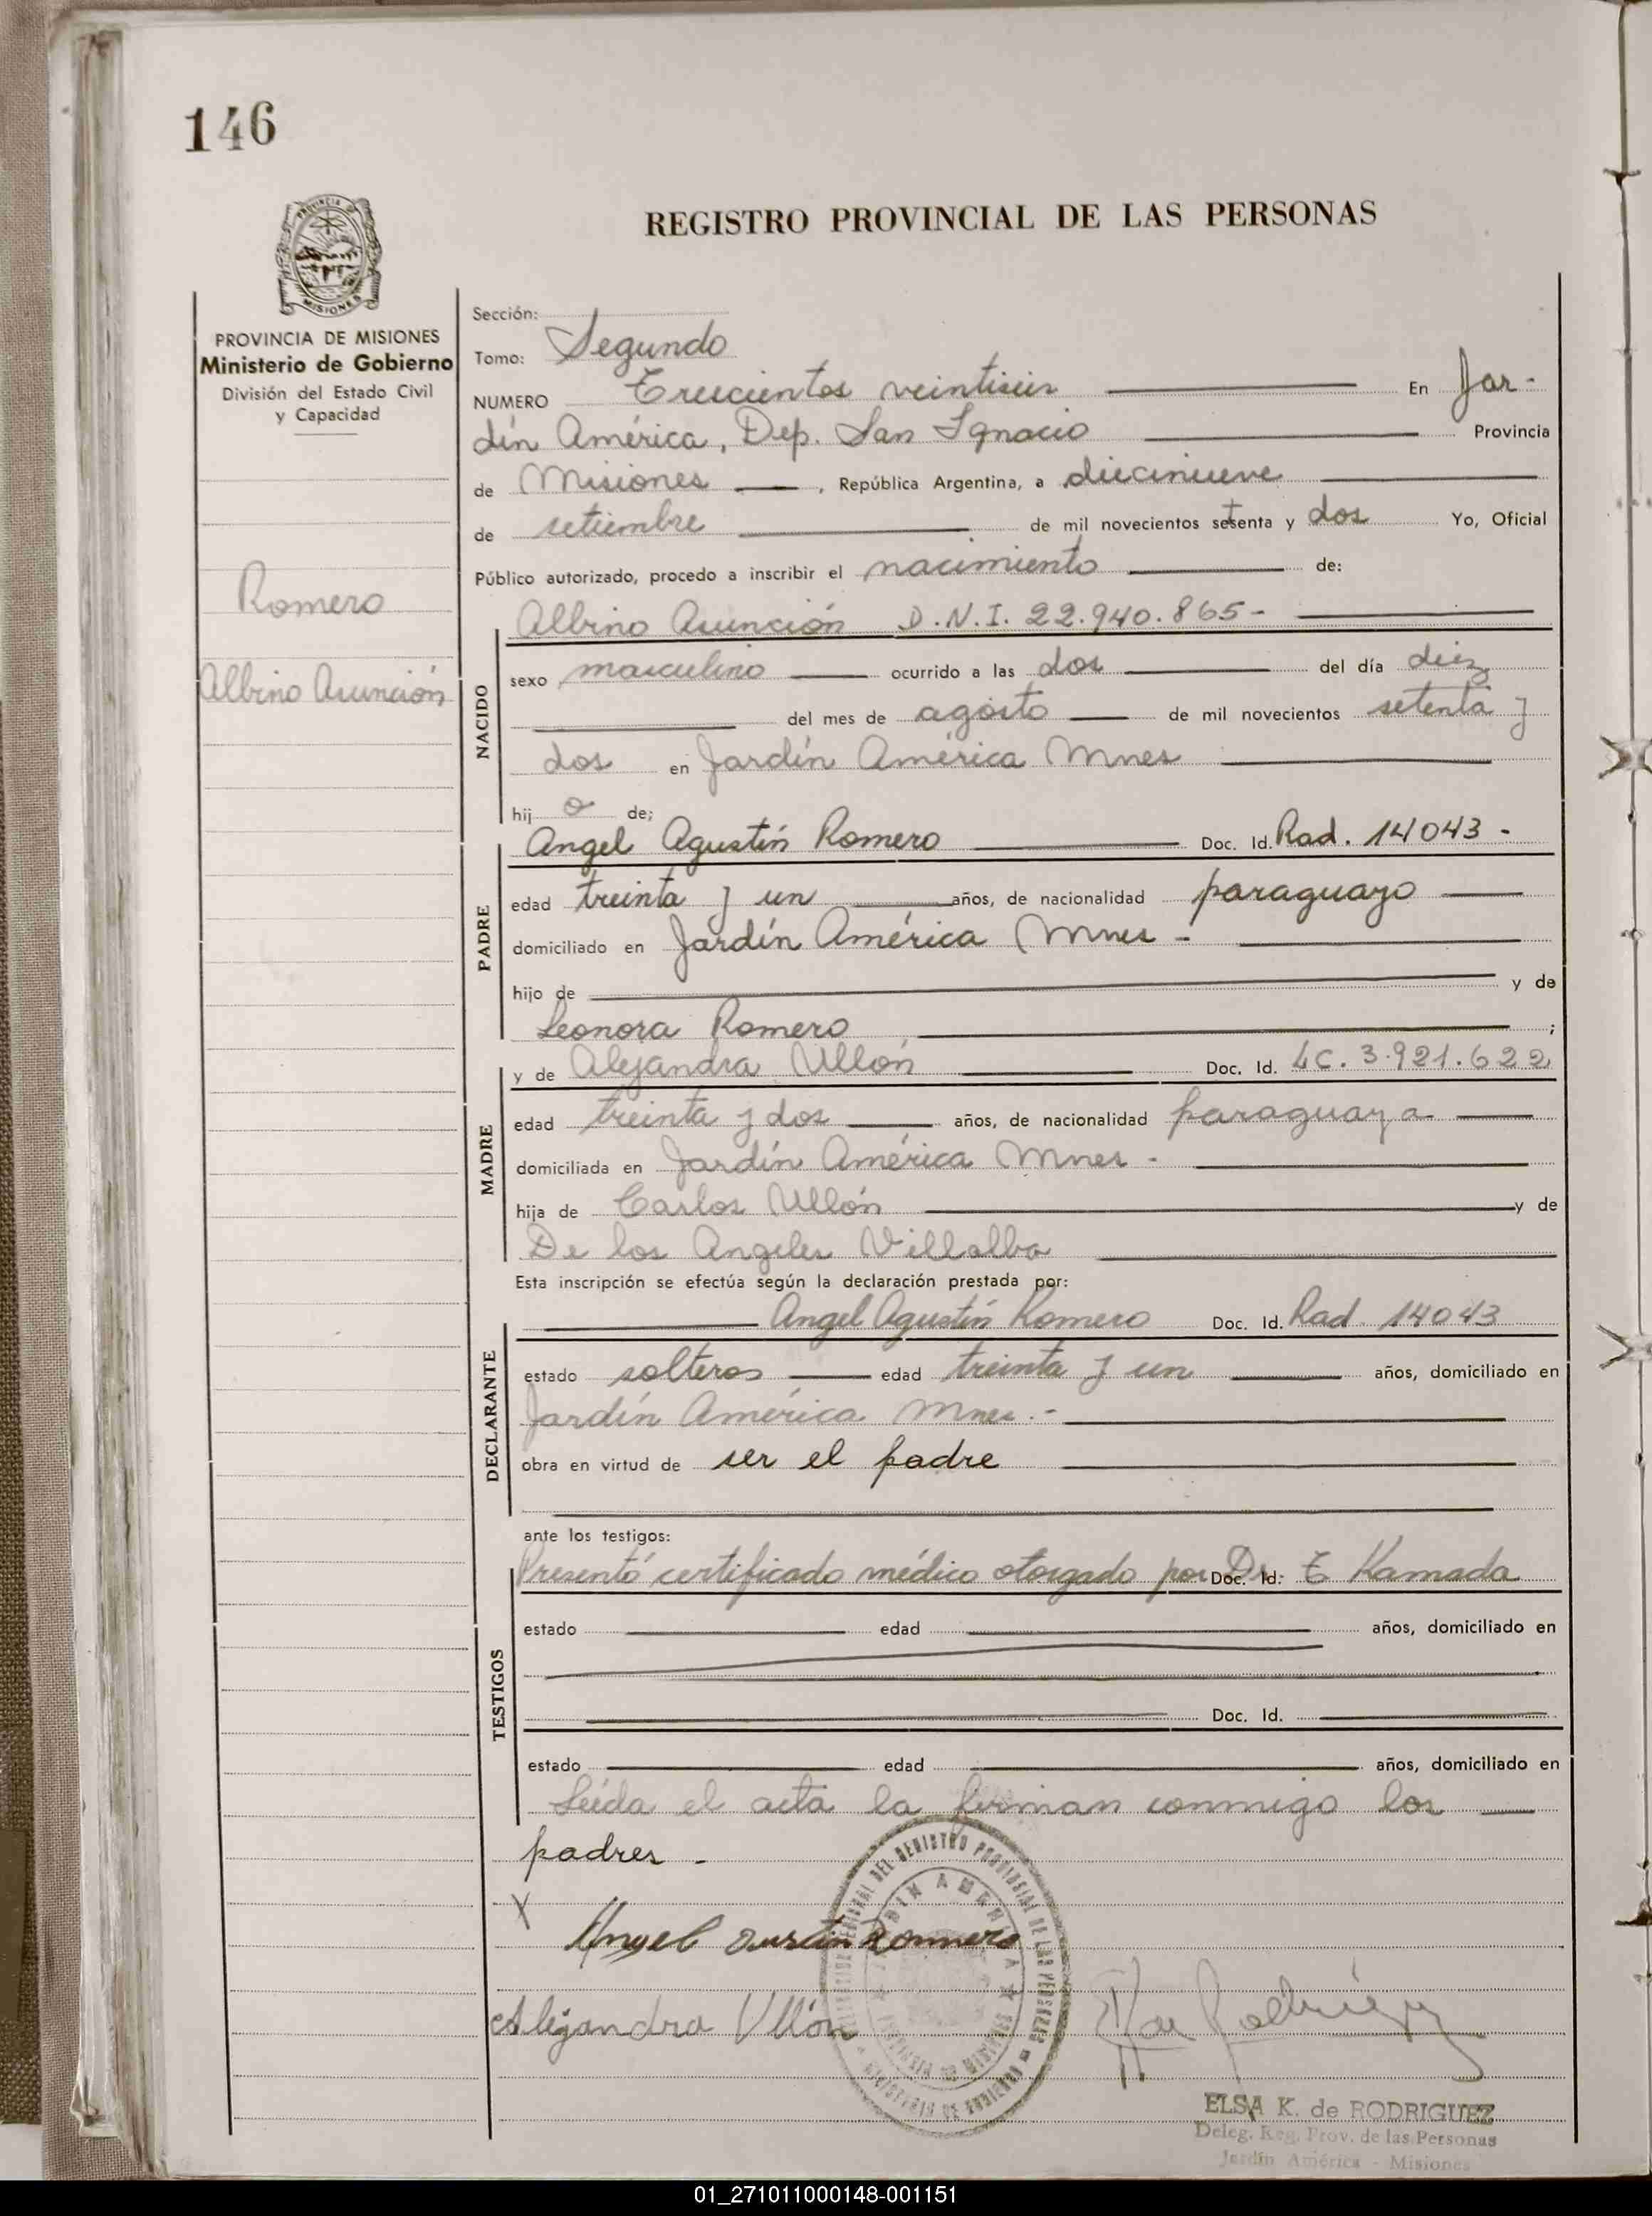 146
PROVINCIA DE MISIONES
REGISTRO PROVINCIAL DE LAS PERSONAS
PROVINCIA DE MISIONES
Ministerio de Gobierno
División del Estado Civil
y Capacidad
Romero
Albino Asunción
Sección:
Tomo: Segundo
NUMERO Trescientos veintiseis En Jar-
dín América, Dep. San Ignacio Provincia
de Misiones, República Argentina, a diecinueve
de setiembre de mil novecientos setenta y dos Yo, Oficial
Público autorizado, procedo a inscribir el nacimiento de:
Albino Asunción D.N.I. 22.940.865-
NACIDO
sexo masculino ocurrido a las dos del día diez
del mes de agosto de mil novecientos setenta y
dos en Jardín América Mnes
hijo de;
Angel Agustín Romero Doc. Id. Rad. 14043 -
PADRE
edad treinta y un años, de nacionalidad paraguayo
domiciliado en Jardín América Mnes -
hijo de y de
Leonora Romero ;
y de Alejandra Ullón Doc. Id. LC. 3.921.622
MADRE
edad treinta y dos años, de nacionalidad paraguaya
domiciliada en Jardín América Mnes -
hija de Carlos Ullón y de
De los Angeles Villalba
Esta inscripción se efectúa según la declaración prestada por:
Angel Agustín Romero Doc. Id. Rad. 14043
DECLARANTE
estado solteros edad treinta y un años, domiciliado en
Jardín América Mnes.-
obra en virtud de ser el padre
ante los testigos:
Presentó certificado médico otorgado por Dr. Doc. Id. T Kamada
TESTIGOS
estado edad años, domiciliado en
Doc. Id.
estado edad años, domiciliado en
Leída el acta la firman conmigo los
padres -
X
Angel Romero
Alejandra Ullón
JARDIN AMERICA
ELSA K. de RODRIGUEZ
Deleg. Reg. Prov. de las Personas
Jardín América - Misiones
01_271011000148-001151